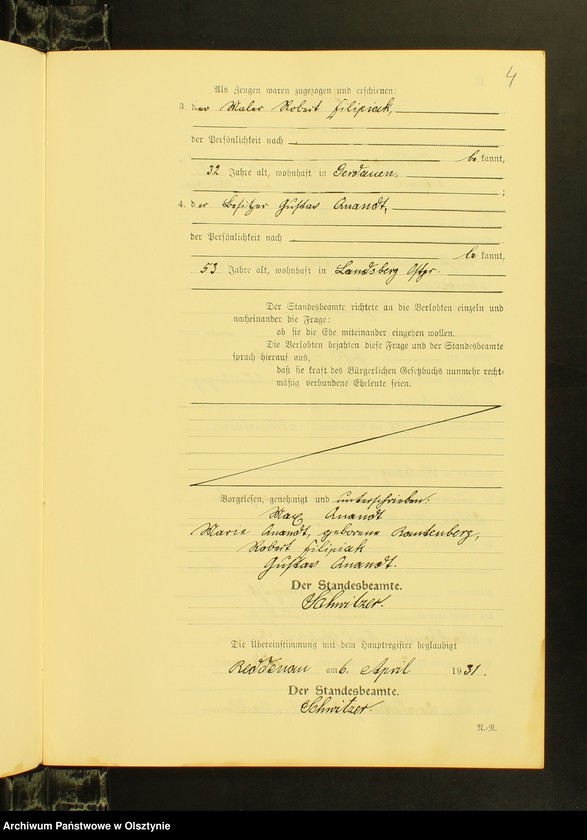 4
Als Zeugen waren zugezogen und erschienen:
3. der Maler Robert Filipiak,
der Persönlichkeit nach
be kannt,
32 Jahre alt, wohnhaft in Gerdauen.
;
4. der Besitzer Gustav Anandt,
der Persönlichkeit nach
be kannt,
53 Jahre alt, wohnhaft in Landsberg Ostpr.
Der Standesbeamte richtete an die Verlobten einzeln und
nacheinander die Frage:
ob sie die Ehe miteinander eingehen wollen.
Die Verlobten bejahten diese Frage und der Standesbeamte
sprach hierauf aus,
daß sie kraft des Bürgerlichen Gesetzbuchs nunmehr recht-
mäßig verbundene Eheleute seien.
Vorgelesen, genehmigt und unterschrieben:
Max Anandt
Marie Anandt, geborene Rautenberg,
Robert Filipiak
Gustav Anandt.
Der Standesbeamte.
Schwitzer.
Die Übereinstimmung mit dem Hauptregister beglaubigt
Reddenau am 6. April 1931.
Der Standesbeamte.
Schwitzer.
N.-R.
Archiwum Państwowe w Olsztynie